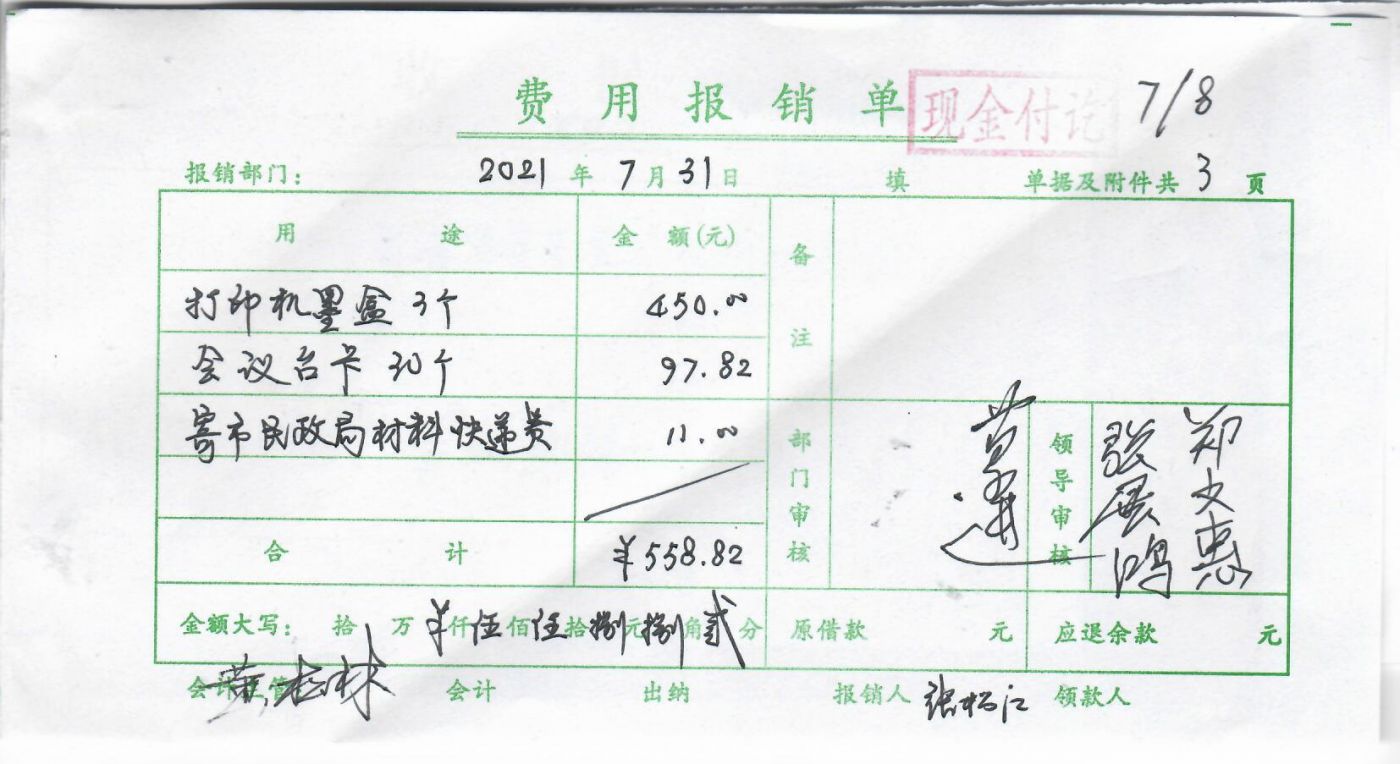 费用报销单 现金付讫 7/8
报销部门： 2021 年 7 月 31 日 填 单据及附件共 3 页
用途 金额(元) 备注
打印机墨盒 3个 450.00
会议台卡 30个 97.82
寄市民政局材料快递费 11.00
部门审核 领导审核 张展鸿 郑文惠
合计 ¥558.82
金额大写： 拾 万 ¥仟伍佰伍拾捌元捌角贰分 原借款 元 应退余款 元
会计主管 会计 出纳 报销人 张杨江 领款人